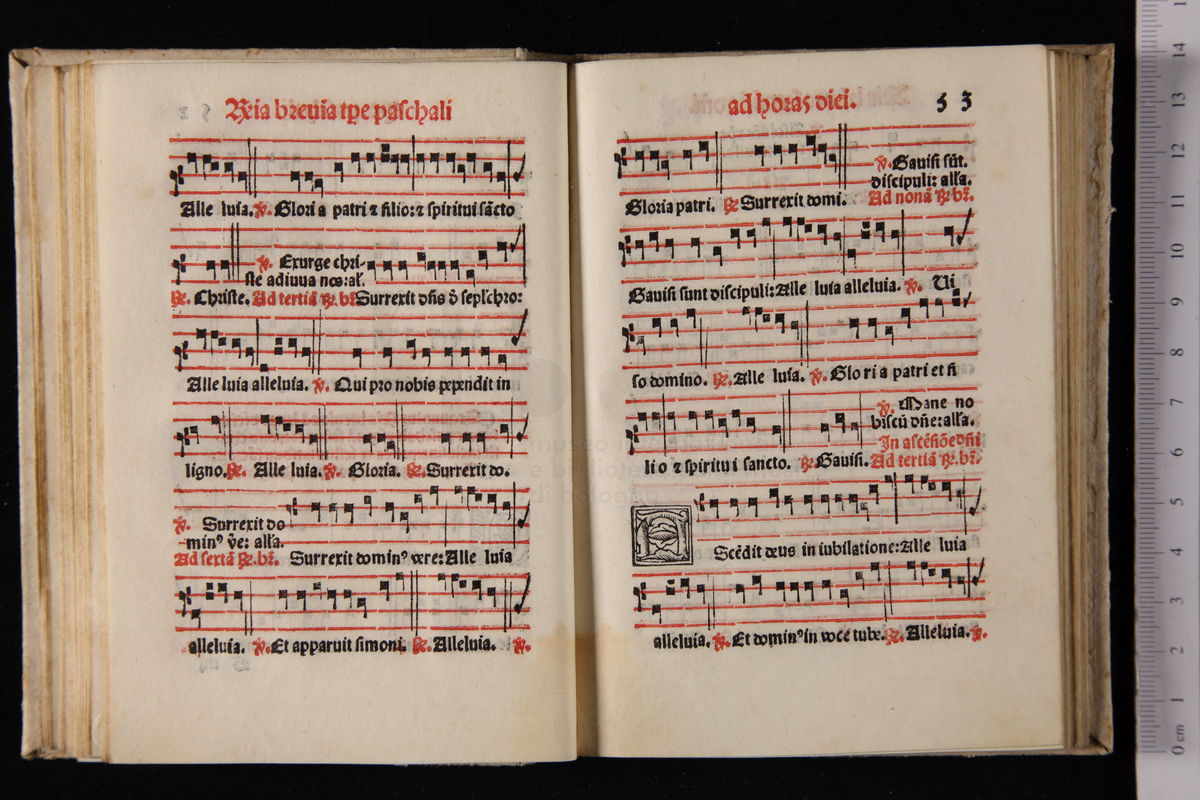 ℟ia breuia tp̄e paschali
Alle luia. ℣. Glori a patri ⁊ filio: ⁊ spiritui sācto
℣. Exurge chri-
ste adiuua nos: al'.
℟. Christe. Ad tertiā ℟. br̄. Surrexit dn̄s d̄ sepl'chro:
Alle luia alleluia. ℣. Qui pro nobis pependit in
ligno. ℟. Alle luia. ℣. Gloria. ℟. Surrexit do.
℣. Surrexit do
minꝰ v̄e: all'a.
Ad sextā ℟. br̄. Surrexit dominꝰ vere: Alle luia
alleluia. ℣. Et apparuit simoni. ℟. Alleluia. ℣.
ad horas diei. 53
℣. Gauisi sūt.
discipuli: all'a.
Gloria patri. ℟ Surrexit domi. Ad nonā ℟ br̄.
Gauisi sunt discipuli: Alle luia alleluia. ℣. Ui
so domino. ℟. Alle luia. ℣. Glo ri a patri et fi
℣. Mane no
biscū dn̄e: all'a.
In ascēsiōe dn̄i
li o ⁊ spiritu i sancto. ℟. Gauisi. Ad tertiā ℟. br̄.
A Scēdit deus in iubilatione: Alle luia
alleluia. ℣. Et dominꝰ in voce tube. ℟. Alleluia. ℣.
museo
e biblioteca
di bologna
0 cm 1 2 3 4 5 6 7 8 9 10 11 12 13 14